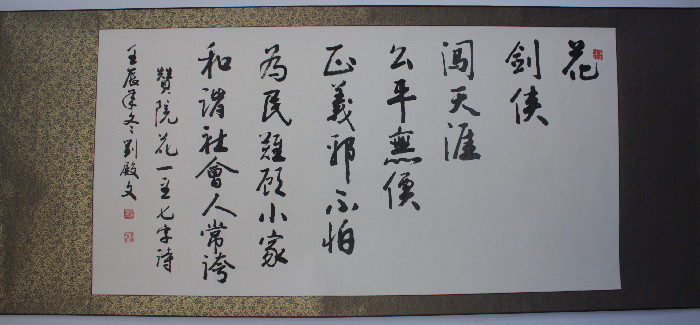 花
剑侠
闯天涯
公平無價
正義邪不怕
為民难顾小家
和谐社會人常誇
赞院花一至七字詩
壬辰年冬刘殿文